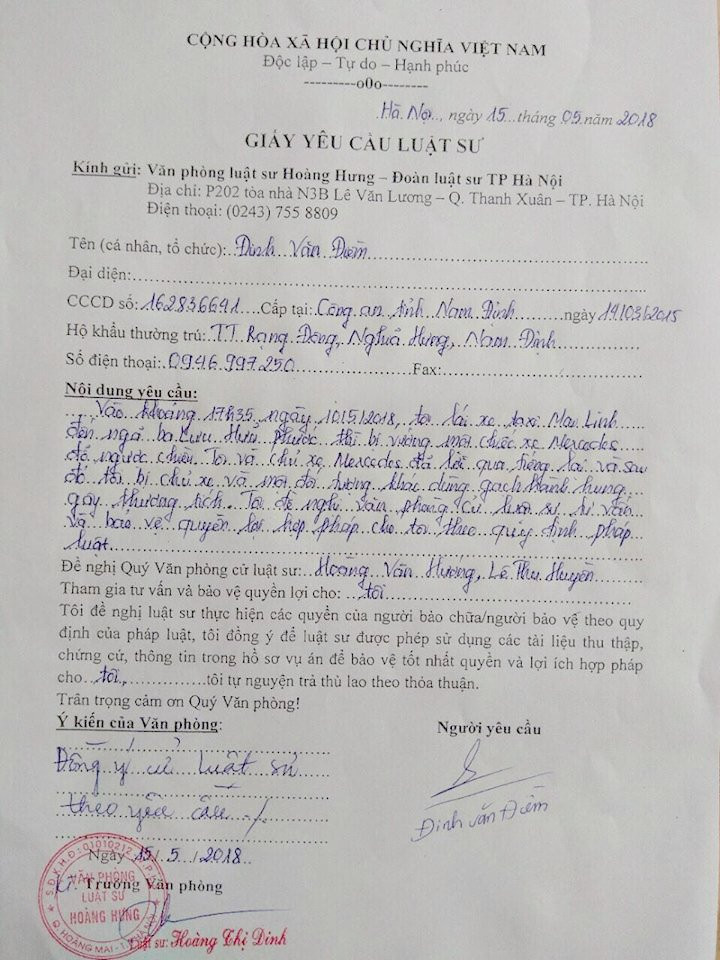 CỘNG HÒA XÃ HỘI CHỦ NGHĨA VIỆT NAM
Độc lập – Tự do – Hạnh phúc
---------o0o--------
Hà Nội, ngày 15 tháng 05 năm 2018
GIẤY YÊU CẦU LUẬT SƯ
Kính gửi: Văn phòng luật sư Hoàng Hưng – Đoàn luật sư TP Hà Nội
Địa chỉ: P202 tòa nhà N3B Lê Văn Lương – Q. Thanh Xuân – TP. Hà Nội
Điện thoại: (0243) 755 8809
Tên (cá nhân, tổ chức): Đinh Văn Điềm
Đại diện:
CCCD số: 162836641 Cấp tại: Công an tỉnh Nam Định ngày 19/03/2015
Hộ khẩu thường trú: TT Rạng Đông, Nghĩa Hưng, Nam Định
Số điện thoại: 0946.997.250 Fax:
Nội dung yêu cầu:
Vào khoảng 17h35, ngày 10/5/2018, tôi lái xe taxi Mai Linh
đến ngã ba Lưu Hữu Phước thì bị vướng một chiếc xe Mercedes
đỗ ngược chiều. Tôi và chủ xe Mercedes đã lời qua tiếng lại và sau
đó tôi bị chủ xe và một đối tượng khác dùng gạch hành hung
gây thương tích. Tôi đề nghị văn phòng cử luật sư tư vấn
và bảo vệ quyền lợi hợp pháp cho tôi theo quy định pháp
luật
Đề nghị Quý Văn phòng cử luật sư: Hoàng Văn Hướng, Lê Thu Huyền
Tham gia tư vấn và bảo vệ quyền lợi cho: tôi
Tôi đề nghị luật sư thực hiện các quyền của người bảo chữa/người bảo vệ theo quy
định của pháp luật, tôi đồng ý để luật sư được phép sử dụng các tài liệu thu thập,
chứng cứ, thông tin trong hồ sơ vụ án để bảo vệ tốt nhất quyền và lợi ích hợp pháp
cho tôi, tôi tự nguyện trả thù lao theo thỏa thuận.
Trân trọng cảm ơn Quý Văn phòng!
Ý kiến của Văn phòng: Người yêu cầu
Đồng ý cử luật sư
theo yêu cầu ./.
Đinh Văn Điềm
Ngày 15/5/2018
Trưởng Văn phòng
VĂN PHÒNG
LUẬT SƯ
HOÀNG HƯNG
Q. HOÀNG MAI
Luật sư: Hoàng Thị Dinh